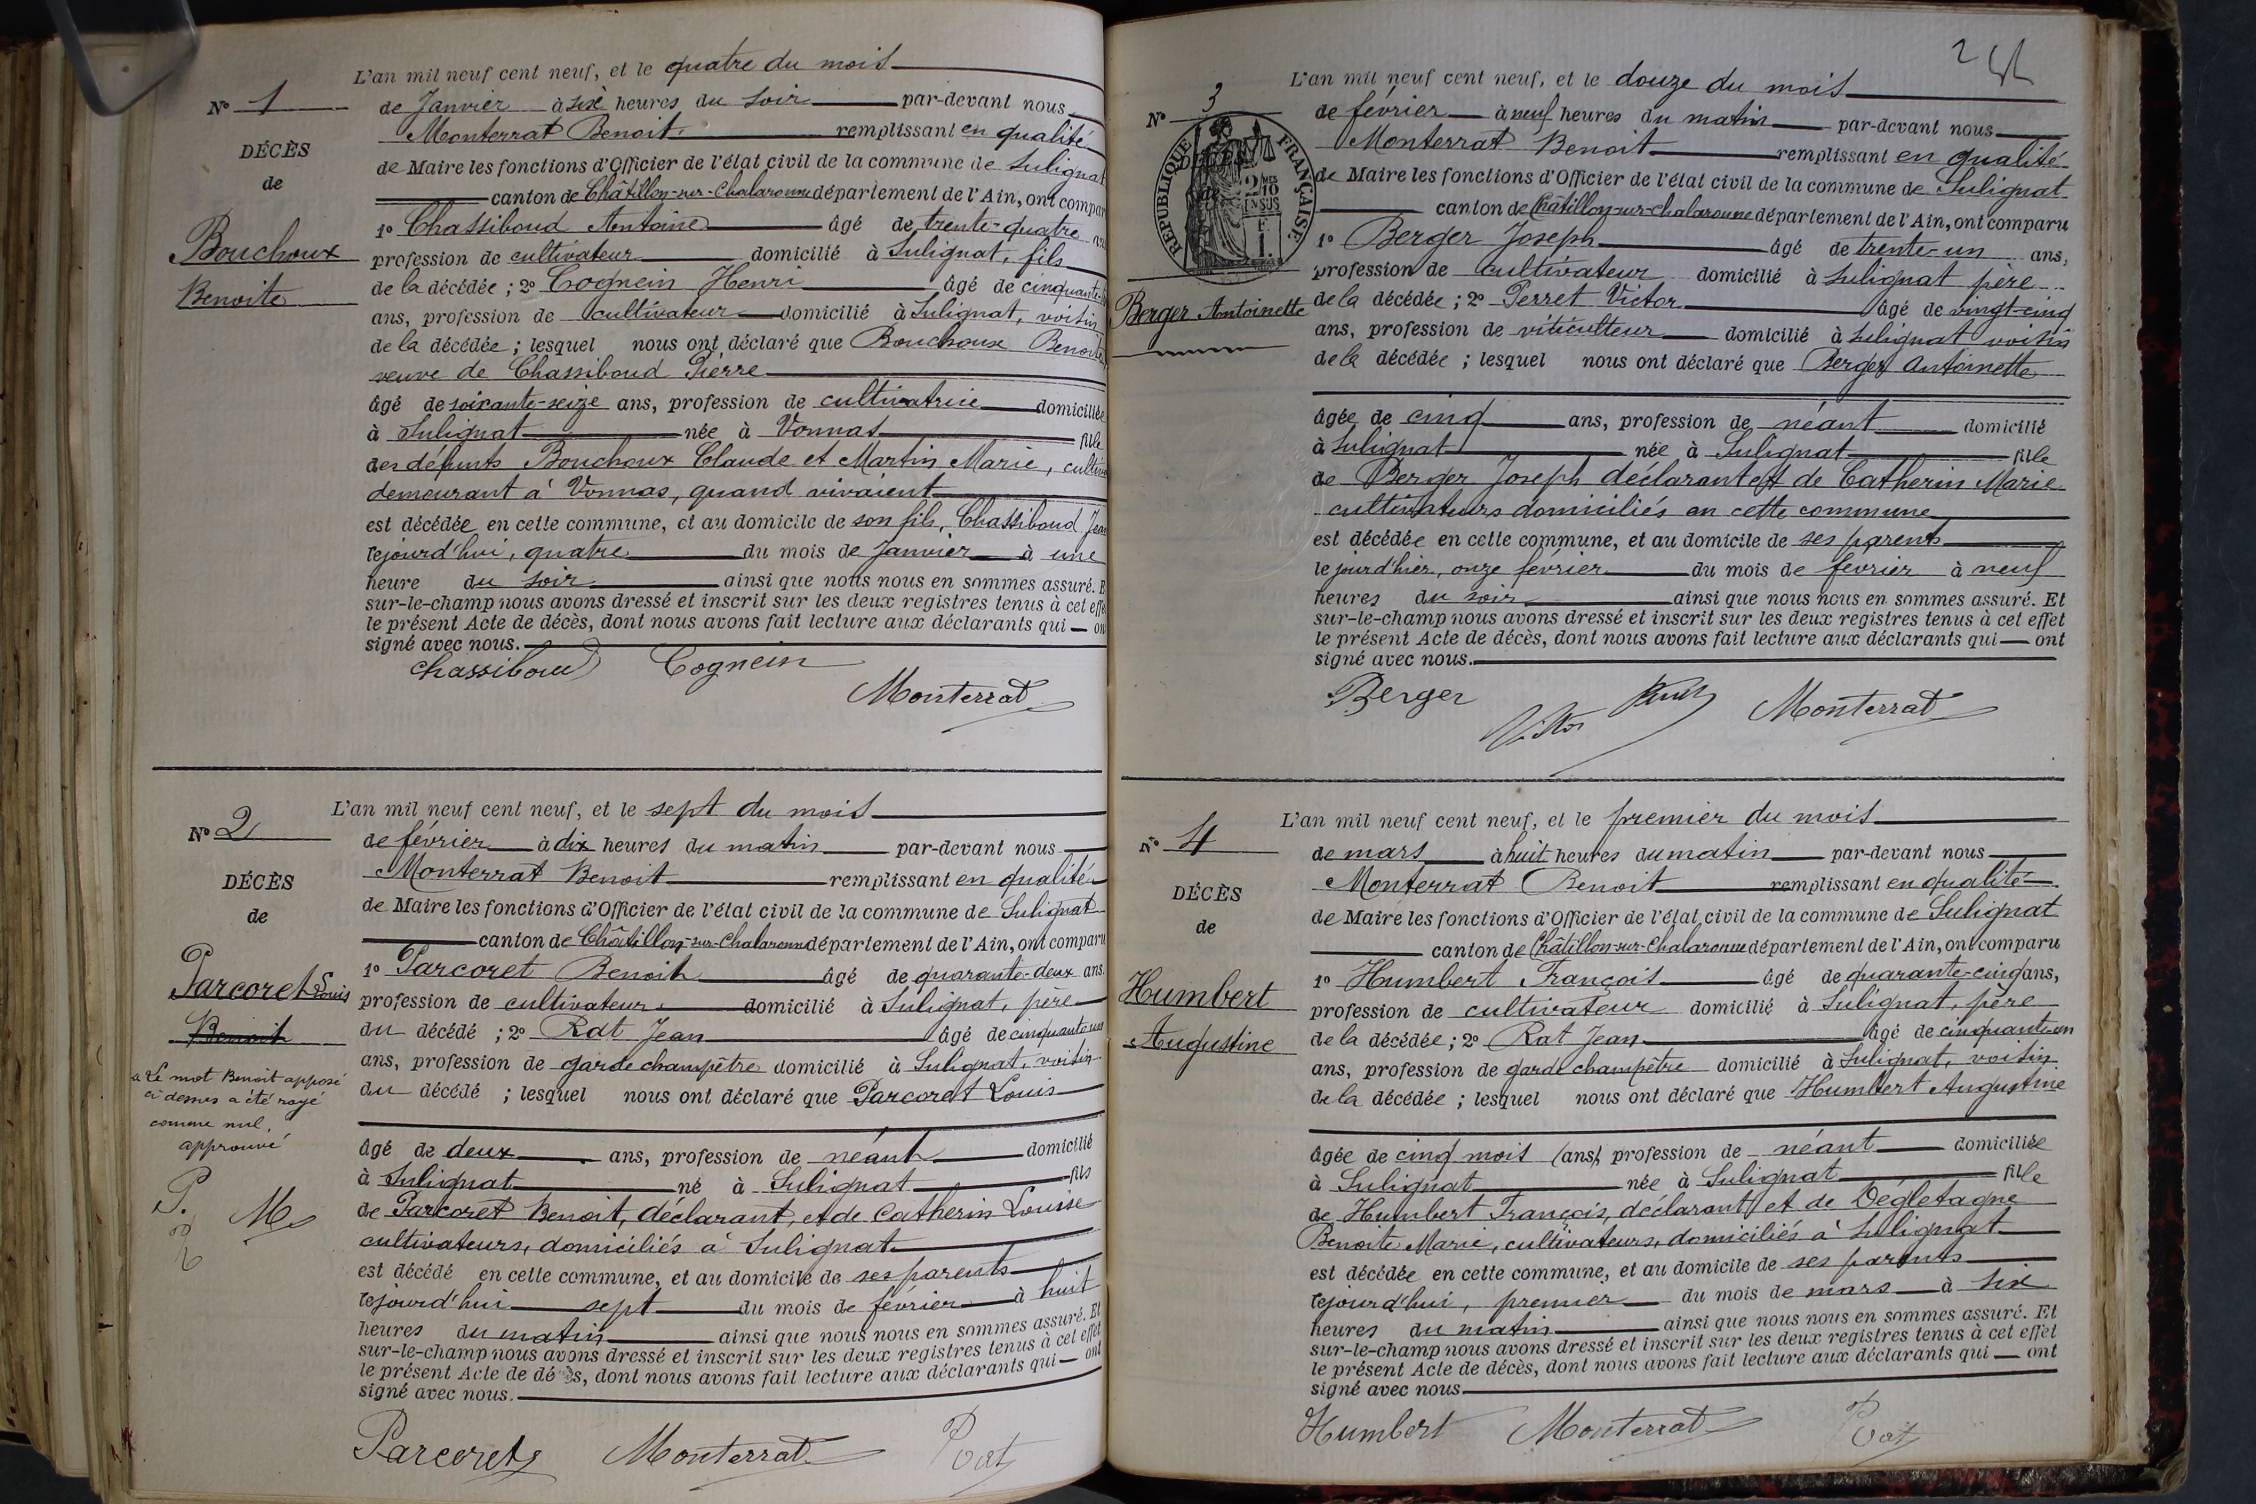 L'an mil neuf cent neuf, et le quatre du mois
N° 1
de Janvier à six heures du soir par-devant nous
Monterrat Benoit remplissant en qualité
DÉCÈS
de Maire les fonctions d'Officier de l'état civil de la commune de Sulignat
de
canton de Châtillon-sur-Chalaronne département de l'Ain, ont compar
1° Chassiboud Antoine âgé de trente-quatre
Bouchoux
profession de cultivateur domicilié à Sulignat, fils
Benoite
de la décédée ; 2° Cognein Henri âgé de cinquante
ans, profession de cultivateur domicilié à Sulignat, voisin
de la décédée ; lesquel nous ont déclaré que Bouchoux Benoite
veuve de Chassiboud Pierre
âgé de soixante-seize ans, profession de cultivatrice domiciliée
à Sulignat née à Vonnas fille
des défunts Bouchoux Claude et Martin Marie, cultiv
demeurant à Vonnas, quand vivaient
est décédée en cette commune, et au domicile de son fils, Chassiboud Jean
cejourd'hui, quatre du mois de Janvier à une
heure du soir ainsi que nous nous en sommes assuré. E
sur-le-champ nous avons dressé et inscrit sur les deux registres tenus à cet effe
le présent Acte de décès, dont nous avons fait lecture aux déclarants qui on
signé avec nous.
Chassiboud Cognein
Monterrat
L'an mil neuf cent neuf, et le sept du mois
N° 2
de février à dix heures du matin par-devant nous
Monterrat Benoit remplissant en qualité
DÉCÈS
de Maire les fonctions d'Officier de l'état civil de la commune de Sulignat
de
canton de Châtillon-sur-Chalaronne département de l'Ain, ont comparu
1° Parcoret Benoit âgé de quarante-deux ans.
Parcoret Louis
profession de cultivateur domicilié à Sulignat, père
Benoit
du décédé ; 2° Rat Jean âgé de cinquante un
ans, profession de garde champêtre domicilié à Sulignat, voisin
Le mot Benoit apposé
ci dessus a été rayé
du décédé ; lesquel nous ont déclaré que Parcoret Louis
comme nul,
approuvé
âgé de deux ans, profession de néant domicilié
à Sulignat né à Sulignat fils
P.
M
de Parcoret Benoit, déclarant, et de Catherin Louise
cultivateurs, domiciliés à Sulignat
est décédé en cette commune, et au domicile de ses parents
cejourd'hui sept du mois de février à huit
heures du matin ainsi que nous nous en sommes assuré. Et
sur-le-champ nous avons dressé et inscrit sur les deux registres tenus à cet effet
le présent Acte de décès, dont nous avons fait lecture aux déclarants qui ont
signé avec nous.
Parcoret Monterrat Rat
L'an mil neuf cent neuf, et le douze du mois
N° 3
de février à neuf heures du matin par-devant nous
Monterrat Benoit remplissant en qualité
RÉPUBLIQUE FRANÇAISE
DÉCÈS
de
2 MES 10
EN SUS
F.
1.
de Maire les fonctions d'Officier de l'état civil de la commune de Sulignat
canton de Châtillon-sur-Chalaronne département de l'Ain, ont comparu
1° Berger Joseph âgé de trente-un ans,
profession de cultivateur domicilié à Sulignat père
Berger Antoinette
de la décédée ; 2° Perret Victor âgé de vingt-cinq
ans, profession de viticulteur domicilié à Sulignat voisin
de la décédée ; lesquel nous ont déclaré que Berger Antoinette
âgée de cinq ans, profession de néant domicilié
à Sulignat née à Sulignat fille
de Berger Joseph déclarant et de Catherin Marie
cultivateurs domiciliés en cette commune
est décédée en cette commune, et au domicile de ses parents
le jour d'hier, onze février du mois de février à neuf
heures du soir ainsi que nous nous en sommes assuré. Et
sur-le-champ nous avons dressé et inscrit sur les deux registres tenus à cet effet
le présent Acte de décès, dont nous avons fait lecture aux déclarants qui ont
signé avec nous.
Berger Victor Monterrat
L'an mil neuf cent neuf, et le premier du mois
N° 4
de mars à huit heures du matin par-devant nous
Monterrat Benoit remplissant en qualité
DÉCÈS
de Maire les fonctions d'Officier de l'état civil de la commune de Sulignat
de
canton de Châtillon-sur-Chalaronne département de l'Ain, ont comparu
1° Humbert François âgé de quarante-cinq ans,
Humbert
profession de cultivateur domicilié à Sulignat, père
Augustine
de la décédée ; 2° Rat Jean âgé de cinquante-un
ans, profession de garde champêtre domicilié à Sulignat, voisin
de la décédée ; lesquel nous ont déclaré que Humbert Augustine
âgée de cinq mois (ans), profession de néant domiciliée
à Sulignat née à Sulignat fille
de Humbert François, déclarant et de Dégletagne
Benoite Marie, cultivateurs, domiciliés à Sulignat
est décédée en cette commune, et au domicile de ses parents
cejourd'hui, premier du mois de mars à six
heures du matin ainsi que nous nous en sommes assuré. Et
sur-le-champ nous avons dressé et inscrit sur les deux registres tenus à cet effet
le présent Acte de décès, dont nous avons fait lecture aux déclarants qui ont
signé avec nous
Humbert Monterrat Rat